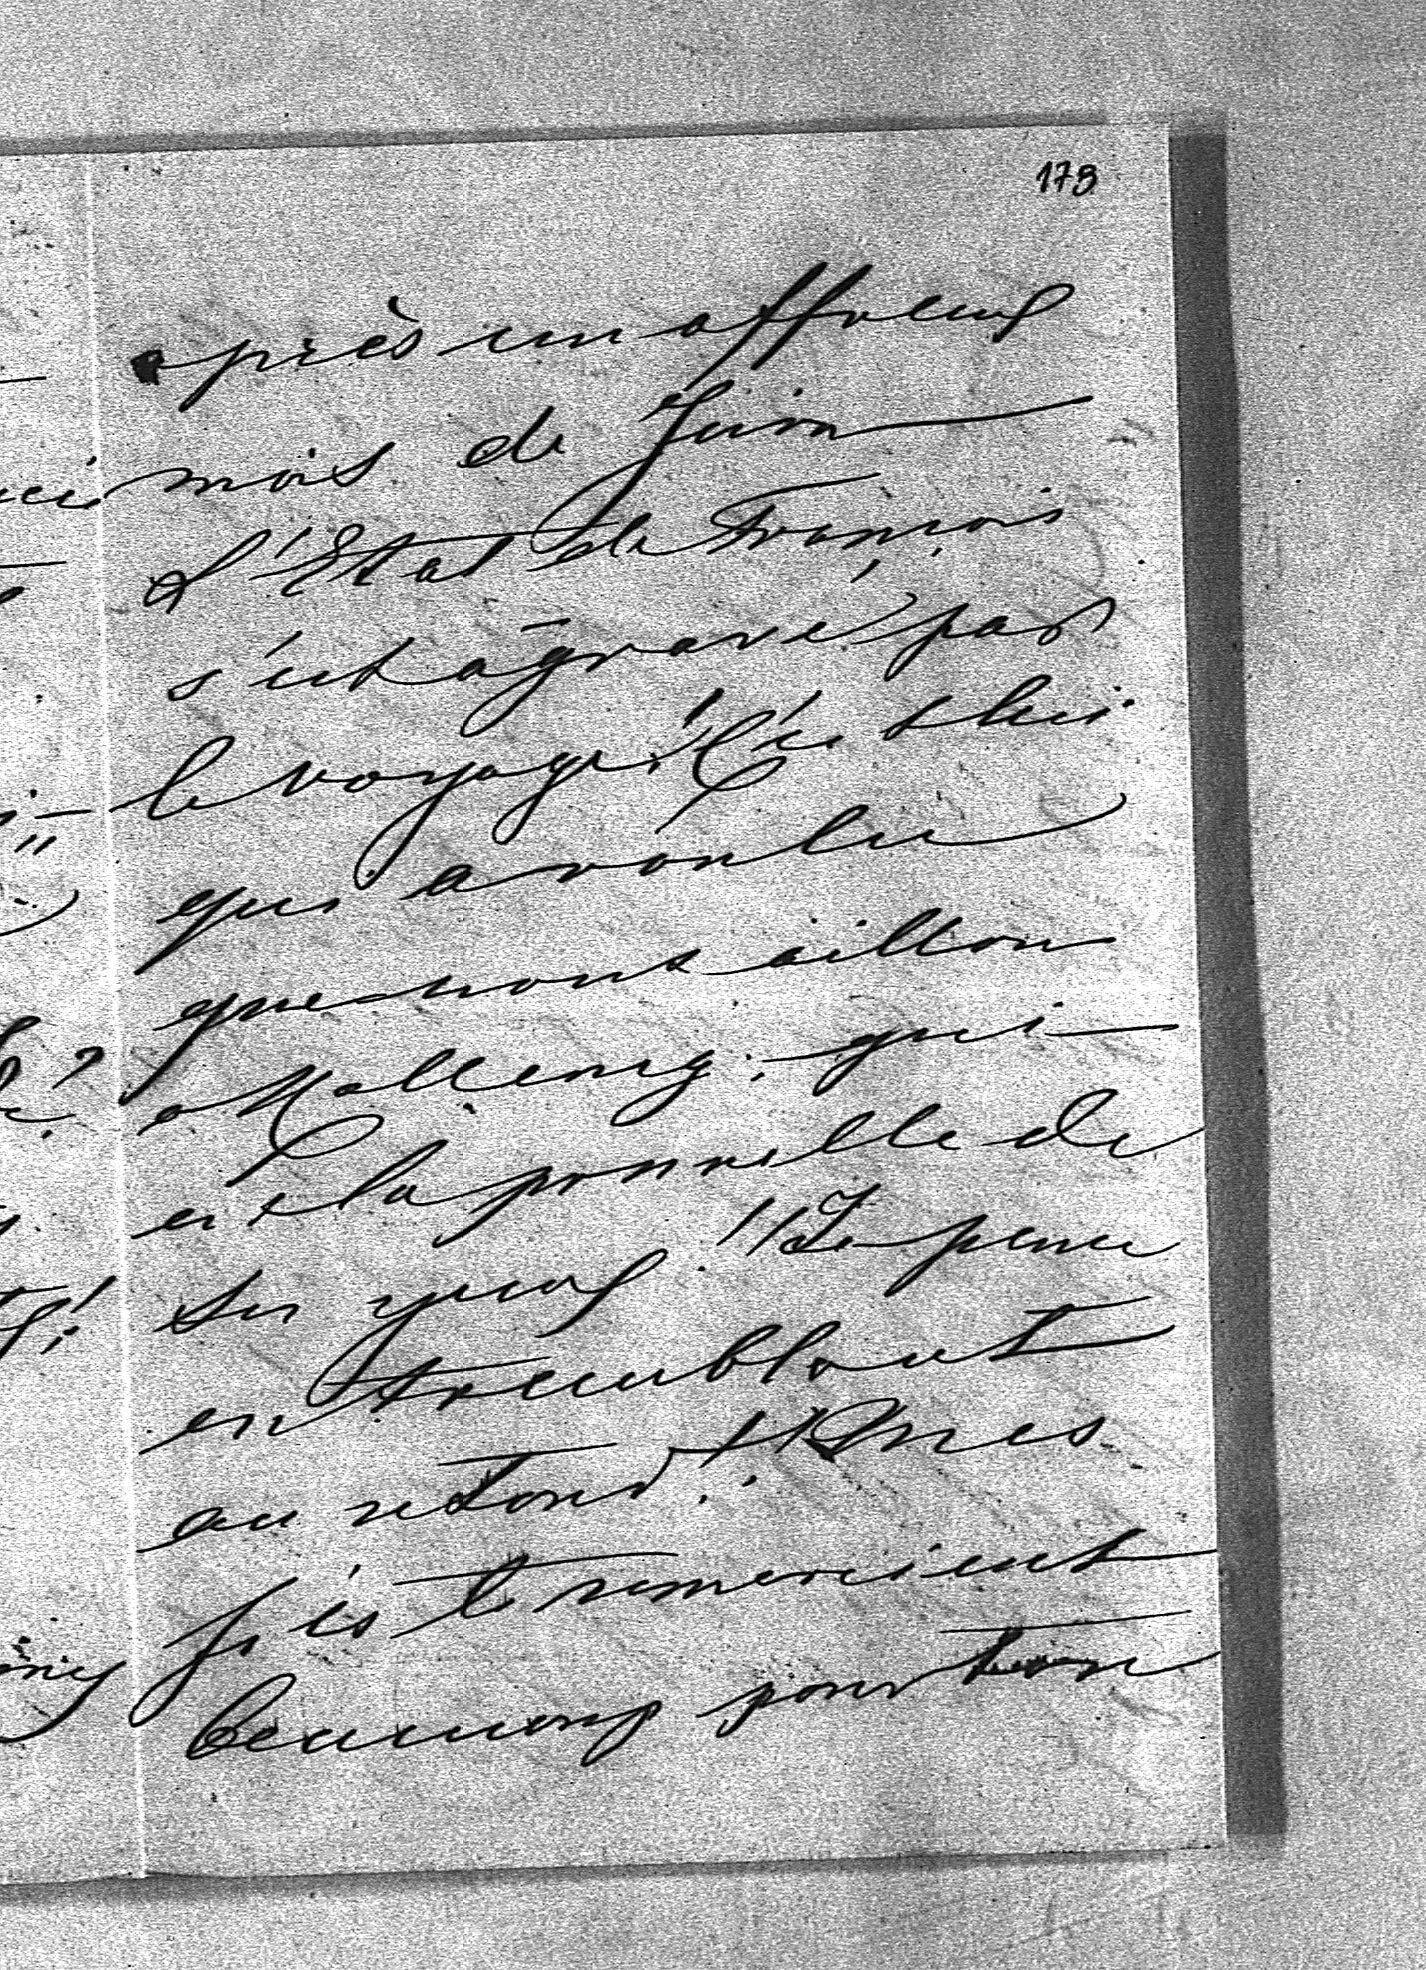 173
après un affreux
mois de Juin
L'Etat de François
s'est agravé par
le voyage! C'est lui
qui a voulu
que nous aillons
a
est la prunelle de
ses yeux!! Je pense
en tremblant
au retour!! Mes
fils te remercient
beaucoup pour ton